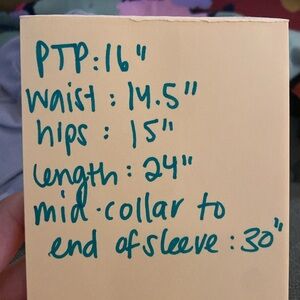 PTP: 16"
waist: 14.5"
hips: 15"
length: 24"
mid-collar to
end of sleeve: 30"